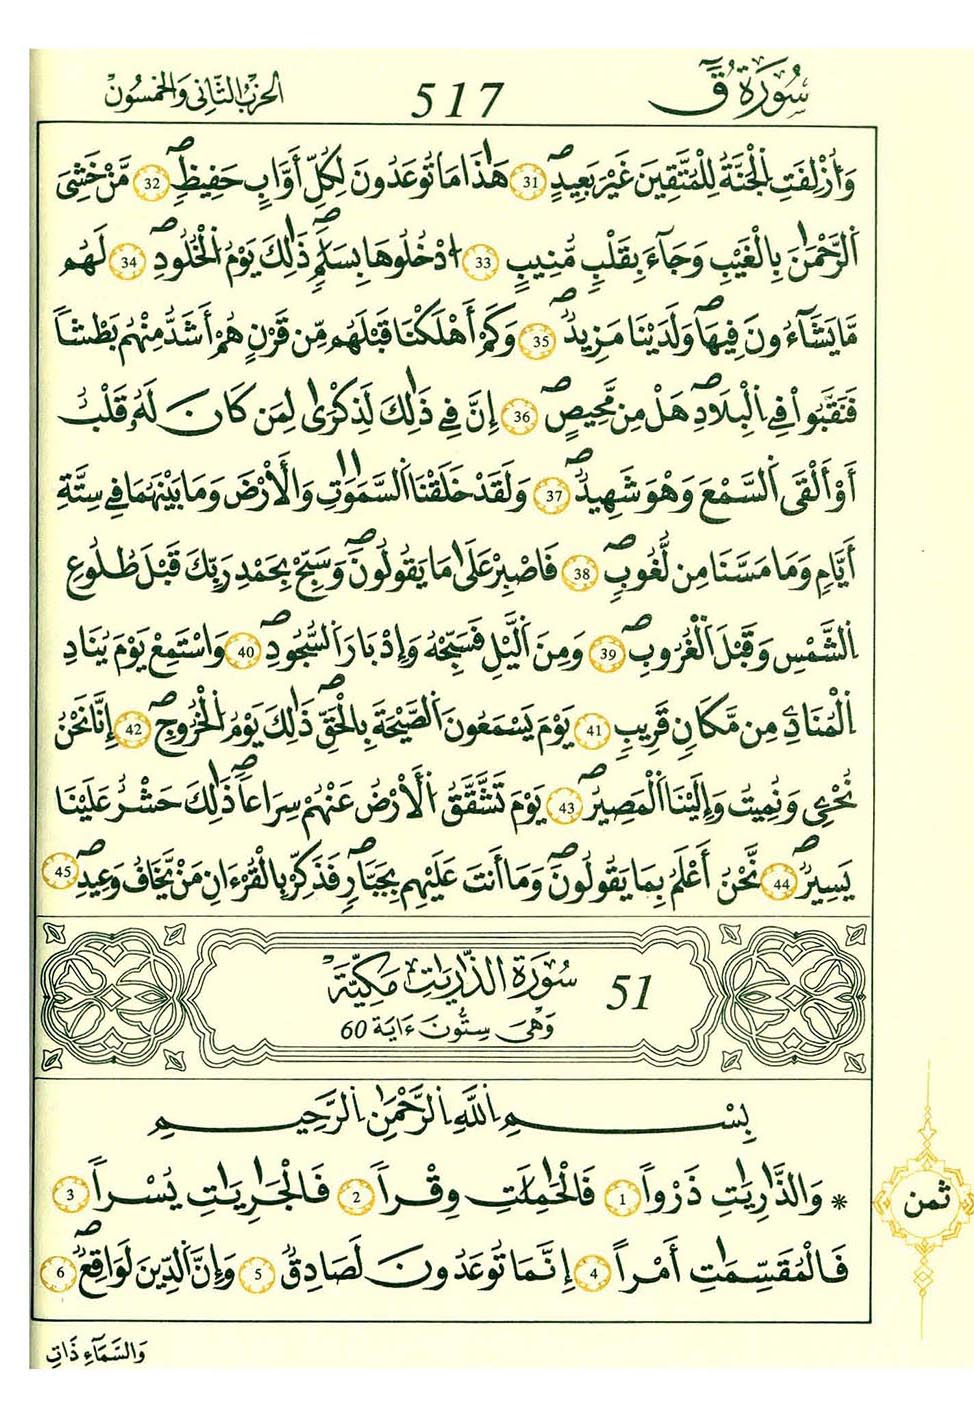 سُورَةُ قٓ
517
الحزب الثَّانِي وَالخَمْسُون
وَأُزْلِفَتِ اِ۬لْجَنَّةُ لِلْمُتَّقِينَ غَيْرَ بَعِيدٍۖ 31 هَٰذَا مَا تُوعَدُونَ لِكُلِّ أَوَّابٍ حَفِيظٍۖ 32 مَّنْ خَشِيَ
اَ۬لرَّحْمَٰنَ بِالْغَيْبِ وَجَآءَ بِقَلْبٖ مُّنِيبٍ 33 اِ۟دْخُلُوهَا بِسَلَٰمٖۖ ذَٰلِكَ يَوْمُ اُ۬لْخُلُودِۖ 34 لَهُم
مَّا يَشَآءُونَ فِيهَاۖ وَلَدَيْنَا مَزِيدٞۖ 35 وَكَمَ اَهْلَكْنَا قَبْلَهُم مِّن قَرْنٍ هُمُۥٓ أَشَدُّ مِنْهُم بَطْشاٗ
فَنَقَّبُواْ فِے اِ۬لْبِلَٰدِۖ هَلْ مِن مَّحِيصٍۖ 36 إِنَّ فِے ذَٰلِكَ لَذِكْر۪ىٰ لِمَن كَانَ لَهُۥ قَلْبٌ
أَوْ أَلْقَى اَ۬لسَّمْعَ وَهُوَ شَهِيدٞۖ 37 وَلَقَدْ خَلَقْنَا اَ۬لسَّمَٰوَٰتِ وَالْأَرْضَ وَمَا بَيْنَهُمَا فِے سِتَّةِ
أَيَّامٖ وَمَا مَسَّنَا مِن لُّغُوبٖۖ 38 فَاصْبِرْ عَلَىٰ مَا يَقُولُونَۖ وَسَبِّحْ بِحَمْدِ رَبِّكَ قَبْلَ طُلُوعِ
اِ۬لشَّمْسِ وَقَبْلَ اَ۬لْغُرُوبِۖ 39 وَمِنَ اَ۬ليْلِ فَسَبِّحْهُ وَإِدْبَٰرَ اَ۬لسُّجُودِۖ 40 وَاسْتَمِعْ يَوْمَ يُنَادِ
اِ۬لْمُنَادِۦ مِن مَّكَانٖ قَرِيبٖ 41 يَوْمَ يَسْمَعُونَ اَ۬لصَّيْحَةَ بِالْحَقِّۖ ذَٰلِكَ يَوْمُ اُ۬لْخُرُوجِۖ 42 إِنَّا نَحْنُ
نُحْيِۦ وَنُمِيتُ وَإِلَيْنَا اَ۬لْمَصِيرُۖ 43 يَوْمَ تَشَّقَّقُ اُ۬لْأَرْضُ عَنْهُمْ سِرَاعاٗۖ ذَٰلِكَ حَشْرٌ عَلَيْنَا
يَسِيرٞۖ 44 نَّحْنُ أَعْلَمُ بِمَا يَقُولُونَۖ وَمَا أَنتَ عَلَيْهِم بِجَبَّارٖۖ فَذَكِّرْ بِالْقُرْءَانِ مَنْ يَّخَافُ وَعِيدِۦۖ 45
51 سُورَةُ الذَّٰرِيَٰتِ مَكِّيَّة
وَهْيَ سِتُّونَ ءَايَة 60
بِسْمِ اِ۬للَّهِ اِ۬لرَّحْمَٰنِ اِ۬لرَّحِيمِ
* وَالذَّٰرِيَٰتِ ذَرْواٗ 1 فَالْحَٰمِلَٰتِ وِقْراٗ 2 فَالْجَٰرِيَٰتِ يُسْراٗ 3
ثمن
فَالْمُقَسِّمَٰتِ أَمْراً 4 إِنَّمَا تُوعَدُونَ لَصَادِقٞ 5 وَإِنَّ اَ۬لدِّينَ لَوَٰقِعٞۖ 6
وَالسَّمَآءِ ذَاتِ